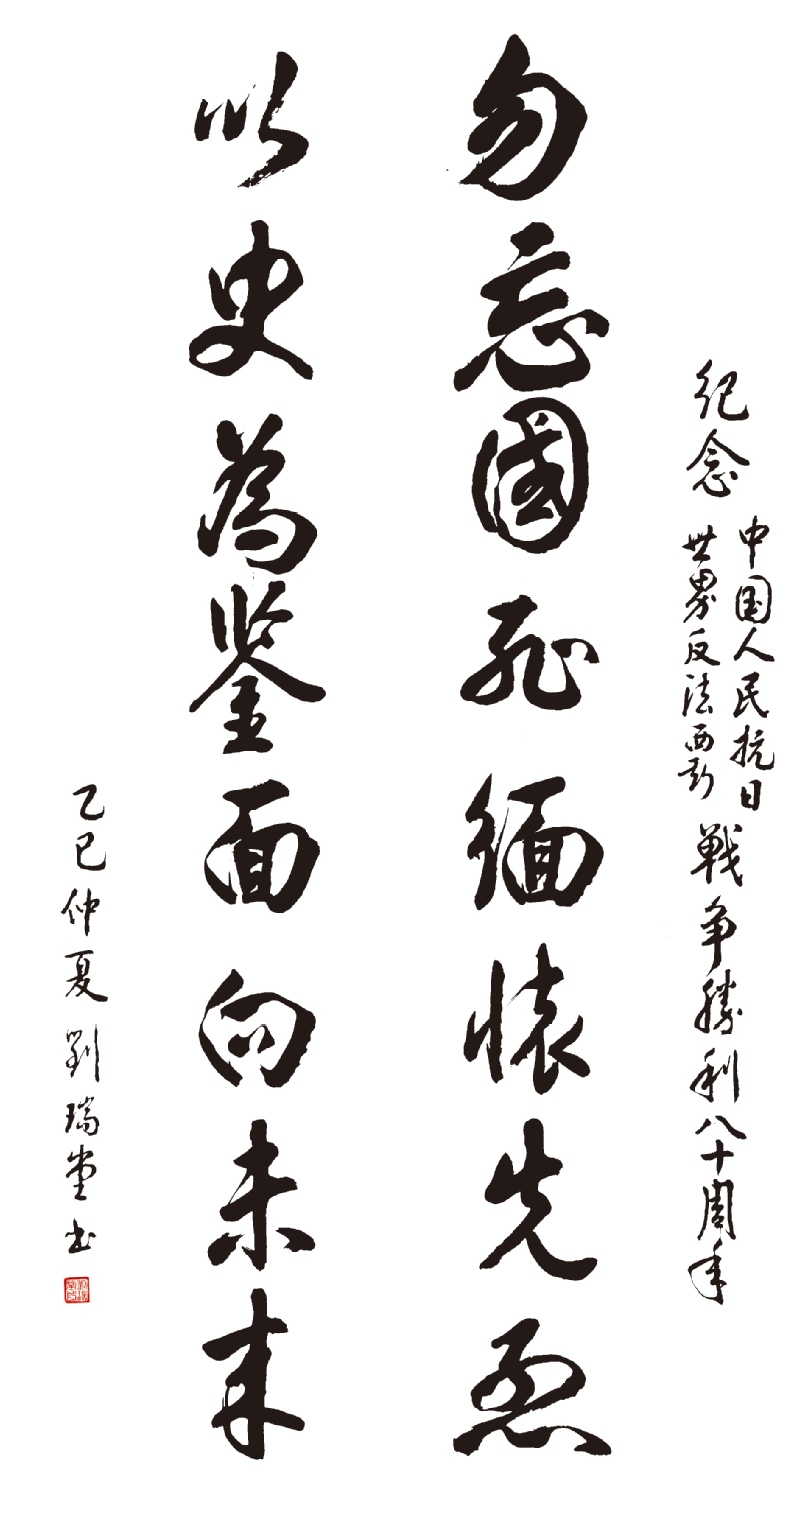 纪念中国人民抗日
世界反法西斯
戰争勝利八十周年
勿忘國耻缅怀先烈
以史為鉴面向未来
乙巳仲夏劉瑞堂书